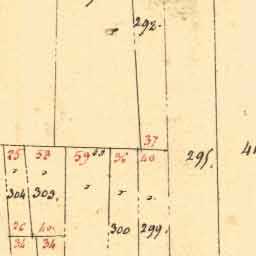 292.
37
25 53 59 36 40 295.
304 303.
300 299.
26 40
34 34